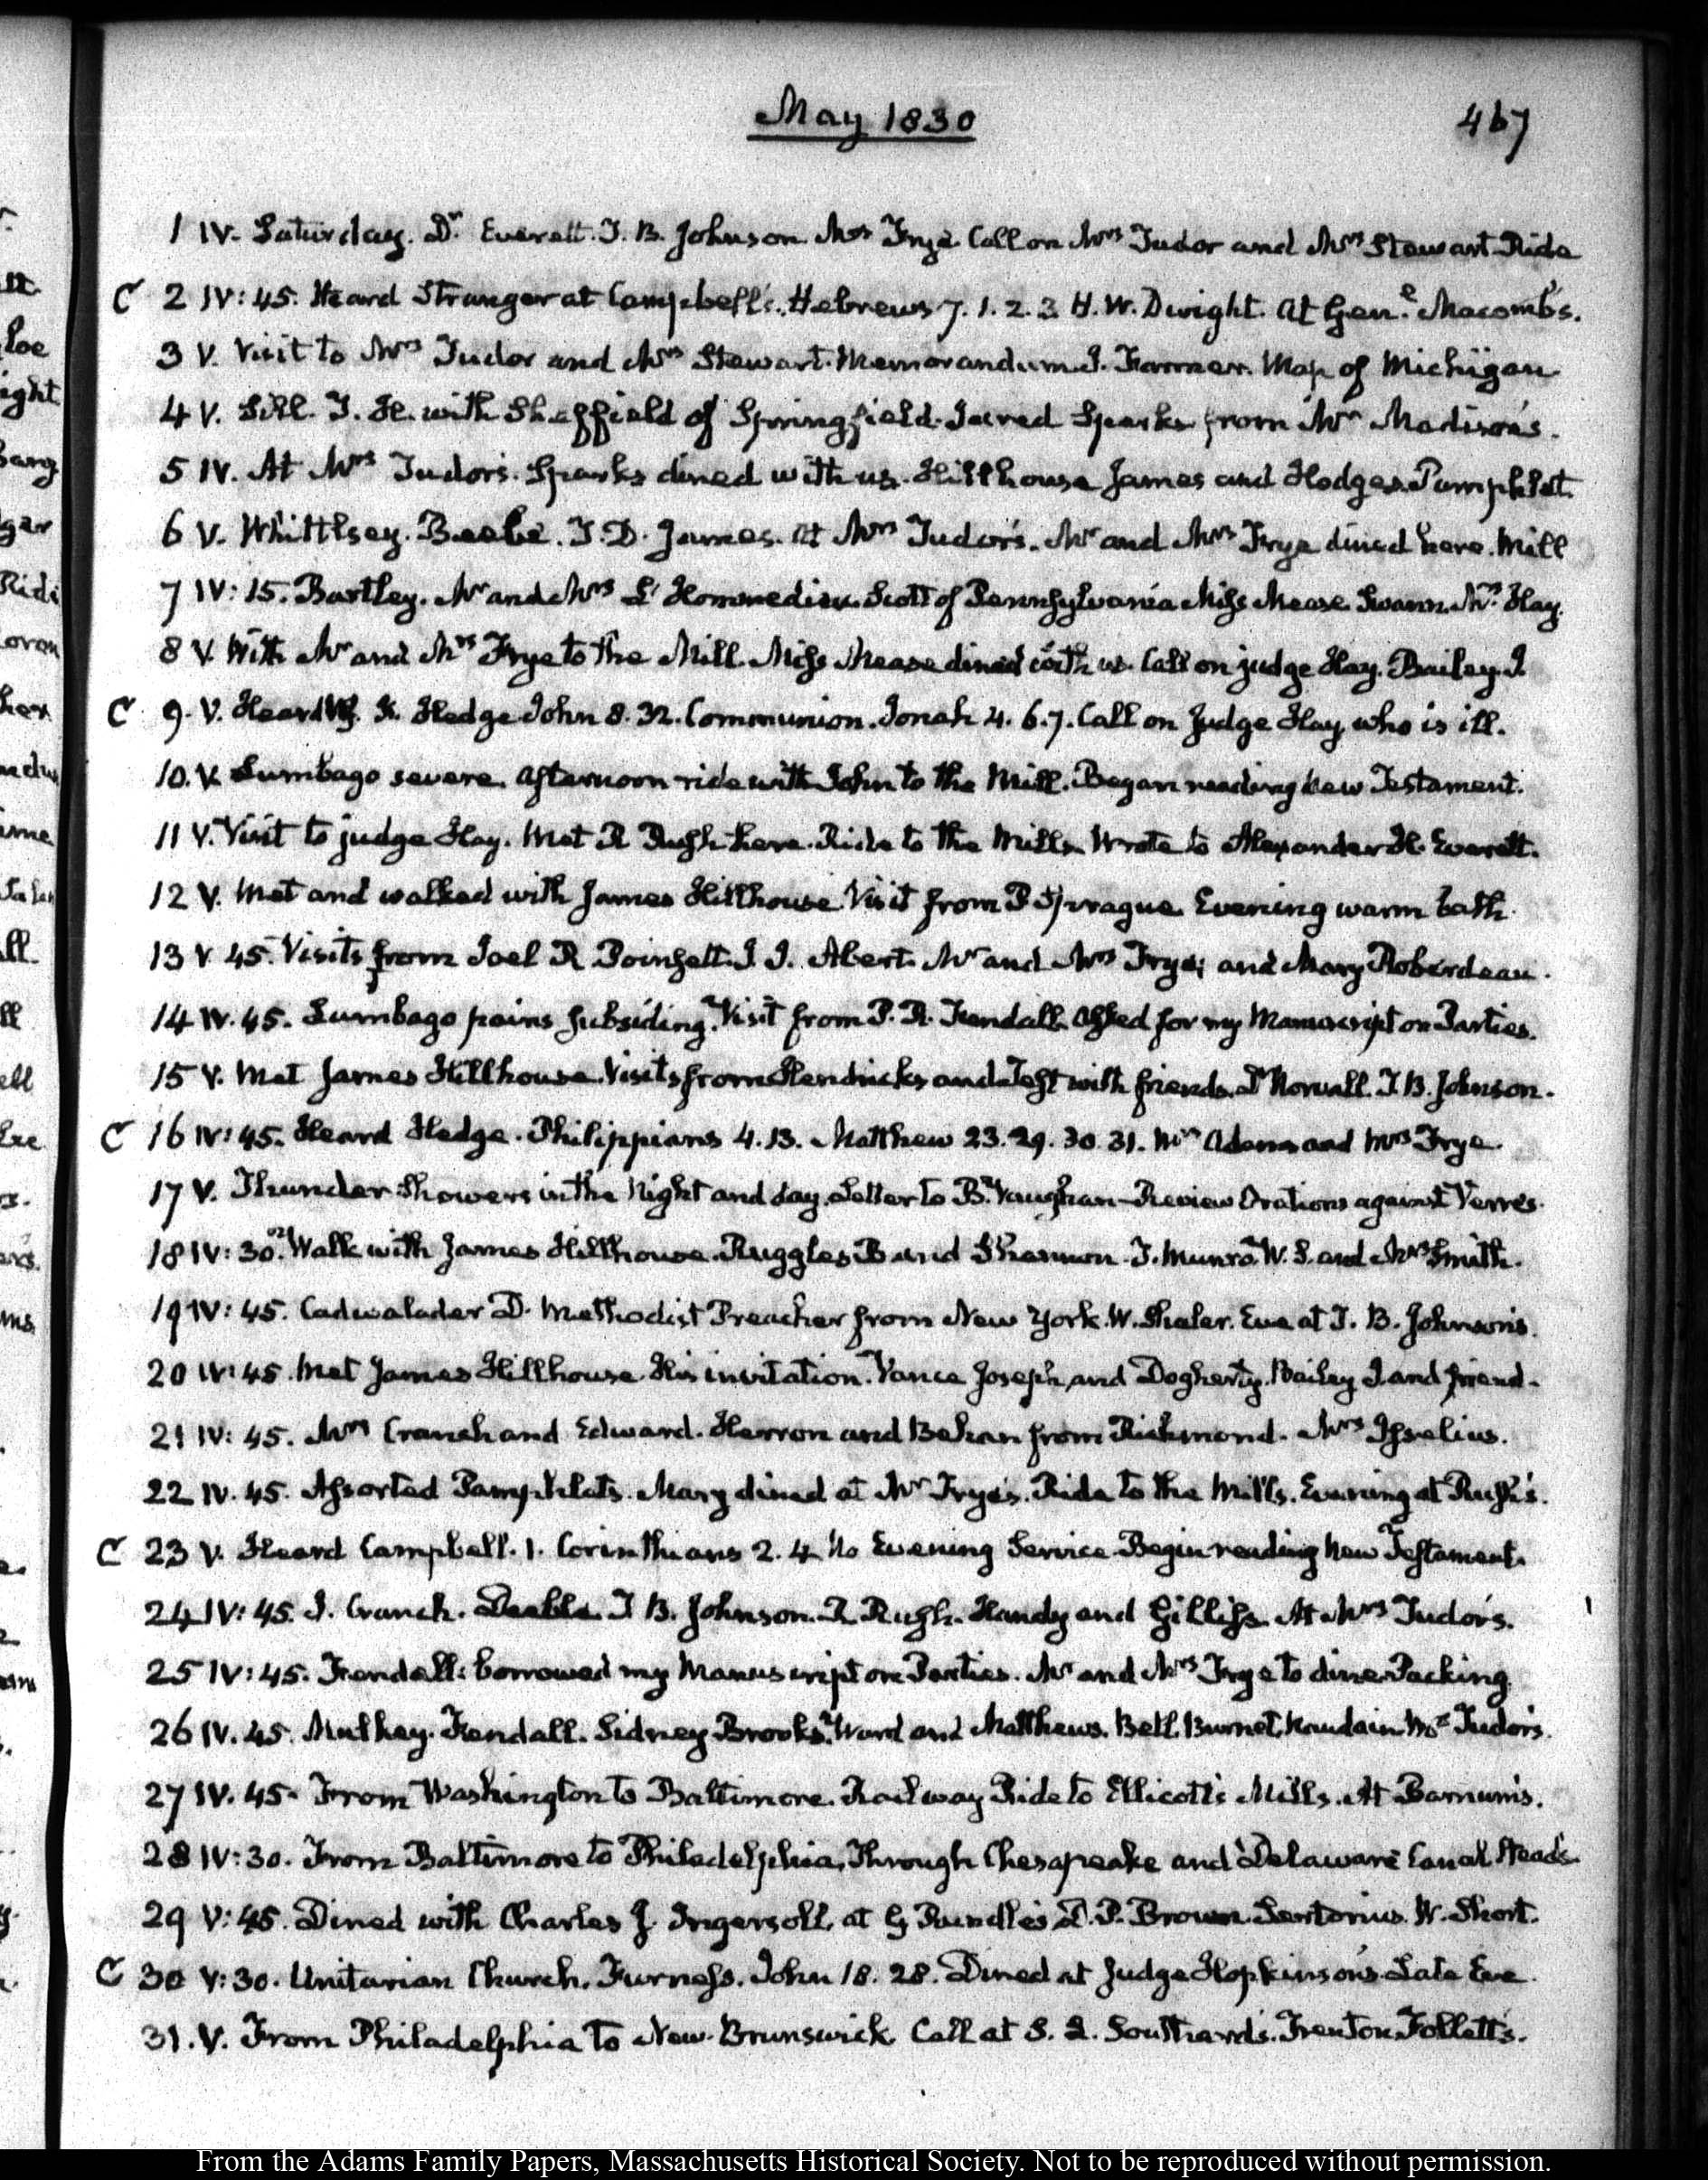 May 1830
467
1 IV. Saturday. Dr. Everett. T. B. Johnson. Mrs Frye. Call on Mrs Tudor and Mrs Stewart Ride
C 2 IV:45. Heard Stranger at Campbell's. Hebrews 7. 1. 2. 3 H. W. Dwight. At Genl. Macomb's.
3 V. Visit to Mrs Tudor and Mrs Stewart. Memorandum J. Farmer. Map of Michigan
4 V. Sill. T. H. with Sheffield of Springfield. Jared Sparks from Mr Madison's.
5 IV. At Mrs Tudor's. Sparks dined with us. Hillhouse James and Hodges. Pamphlet.
6 V. Whittlsey. Beebe. T. D. James. At Mrs Tudor's. Mr and Mrs Frye dined here. Mill
7 IV:15. Bartley. Mr and Mrs L'Hommedieu. Scott of Pennsylvania Miss Mease Swann. Mrs Hay.
8 V. With Mr and Mrs Frye to the Mill. Miss Mease dined with us. Call on judge Hay. Bailey. J.
C 9. V. Heard Hedge John 8. 32. Communion. Jonah 4. 6.7. Call on Judge Hay, who is ill.
10. V. Lumbago severe. Afternoon ride with John to the Mill. Began reading New Testament.
11 V. Visit to judge Hay. Met R Rush here. Ride to the Mills. Wrote to Alexander H. Everett.
12 V. Met and walked with James Hillhouse. Visit from P Sprague. Evening warm bath.
13 V 45. Visits from Joel R Poinsett. J. J. Abert. Mr and Mrs Frye; and Mary Roberdeau.
14 IV. 45. Lumbago pains subsiding. Visit from P. R. Fendall. Asked for my Manuscript on Parties.
15 V. Met James Hillhouse. Visits from Hendricks and Test with friends. Dr Norvall. T. B. Johnson.
C 16 IV:45. Heard Hedge. Philippians 4. 13. Matthew 23. 29. 30. 31. Mrs Adams and Mrs Frye.
17 V. Thunder Showers in the Night and day. Letter to B. Vaughan—Review Orations against Verres.
18 IV:30. Walk with James Hillhouse. Ruggles B and Shannon. T. Munro. W. S. and Mrs Smith.
19 IV:45. Cadwalader D. Methodist Preacher from New York. W. Shaler. Eve at T. B. Johnson's.
20 IV:45. Met James Hillhouse. His invitation. Vance Joseph, and Dogherty. Bailey J. and friend.
21 IV:45. Mrs Cranch and Edward. Herron and Behan from Richmond. Mrs Isselius.
22 IV. 45. Assorted Pamphlets. Mary dined at Mr Frye's. Ride to the Mills. Evening at Rush's.
C 23 V. Heard Campbell. 1. Corinthians 2. 4. No Evening Service. Begin reading New Testament.
24 IV:45. J. Cranch. T B. Johnson. R. Rush. Handy and Gilliss. At Mrs Tudor's.
25 IV:45. Fendall: borrowed my Manuscript on Parties. Mr and Mrs Frye to dine. Packing.
26 IV. 45. Fendall. Sidney Brooks. Ward and Matthews. Bell. Burnet. Naudain. Mrs Tudor's.
27 IV. 45. From Washington to Baltimore. Railway Ride to Ellicott's Mills. At Barnum's.
28 IV:30. From Baltimore to Philadelphia, Through Chesapeake and Delaware Canal. Head's.
29 V:45. Dined with Charles J. Ingersoll, at Brown. Sertorius. W. Short.
C 30 V:30. Unitarian Church. Furness. John 18. 28. Dined at Judge Hopkinson's. Late Eve.
31. V. From Philadelphia to New Brunswick. Call at S. L. Southard's. Trenton. Follett's.
From the Adams Family Papers, Massachusetts Historical Society. Not to be reproduced without permission.